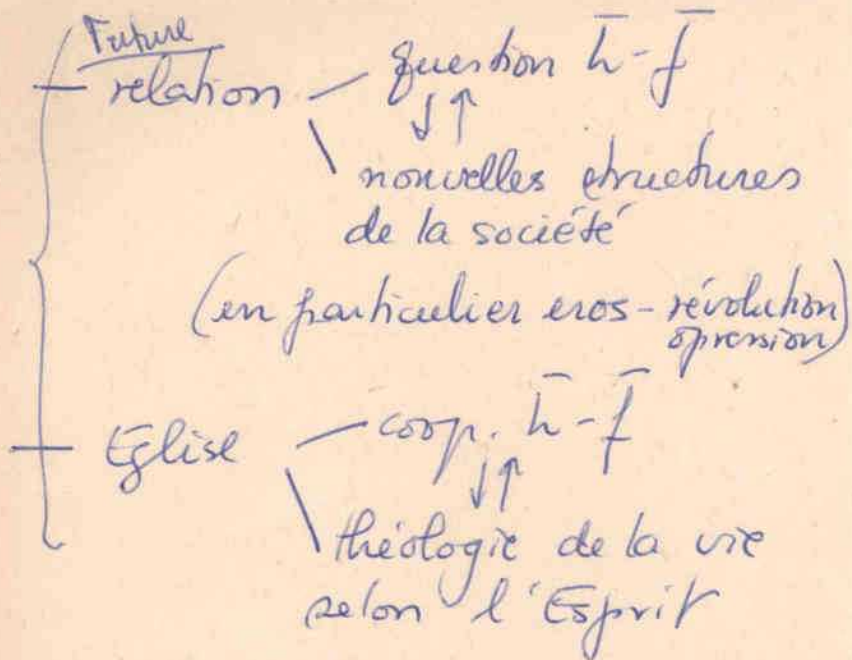 Future
— relation — question h̄ - f̄
↓↑
\ nouvelles structures
de la société
(en particulier eros - révolution
opression)
— Eglise — coop. h̄ - f̄
↓↑
\ théologie de la vie
selon l'Esprit